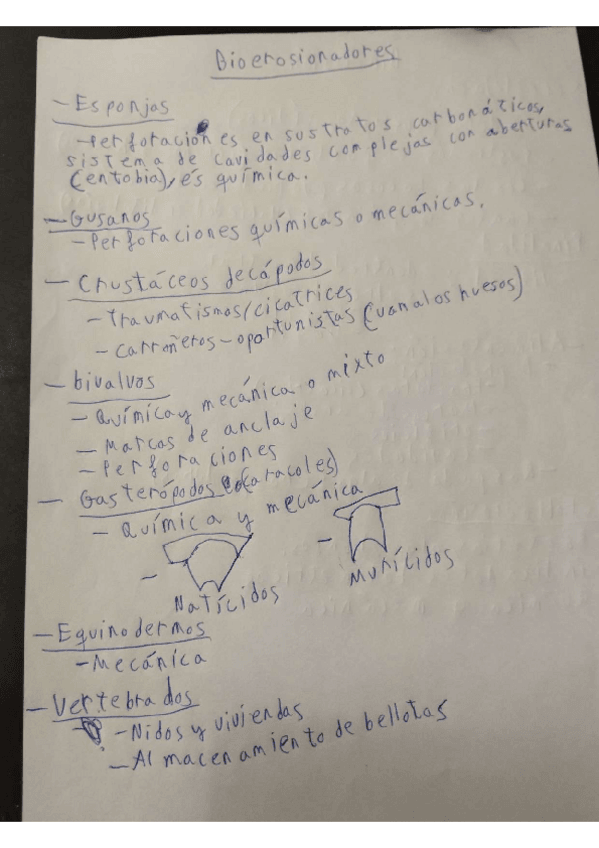 Bioerosionadores
- Esponjas
- Perforaciones en sustratos carbonáticos,
sistema de cavidades complejas con aberturas
(entobia), es química.
- Gusanos
- Perforaciones químicas o mecánicas.
- Crustáceos decápodos
- Traumatismos/cicatrices
- Carroñeros - oportunistas (van a los huesos)
- bivalvos
- Química y mecánica o mixto
- Marcas de anclaje
- Perforaciones
- Gasterópodos (caracoles)
- Química y mecánica
- Natícidos
- Murícidos
- Equinodermos
- Mecánica
- Vertebrados
- Nidos y viviendas
- Almacenamiento de bellotas